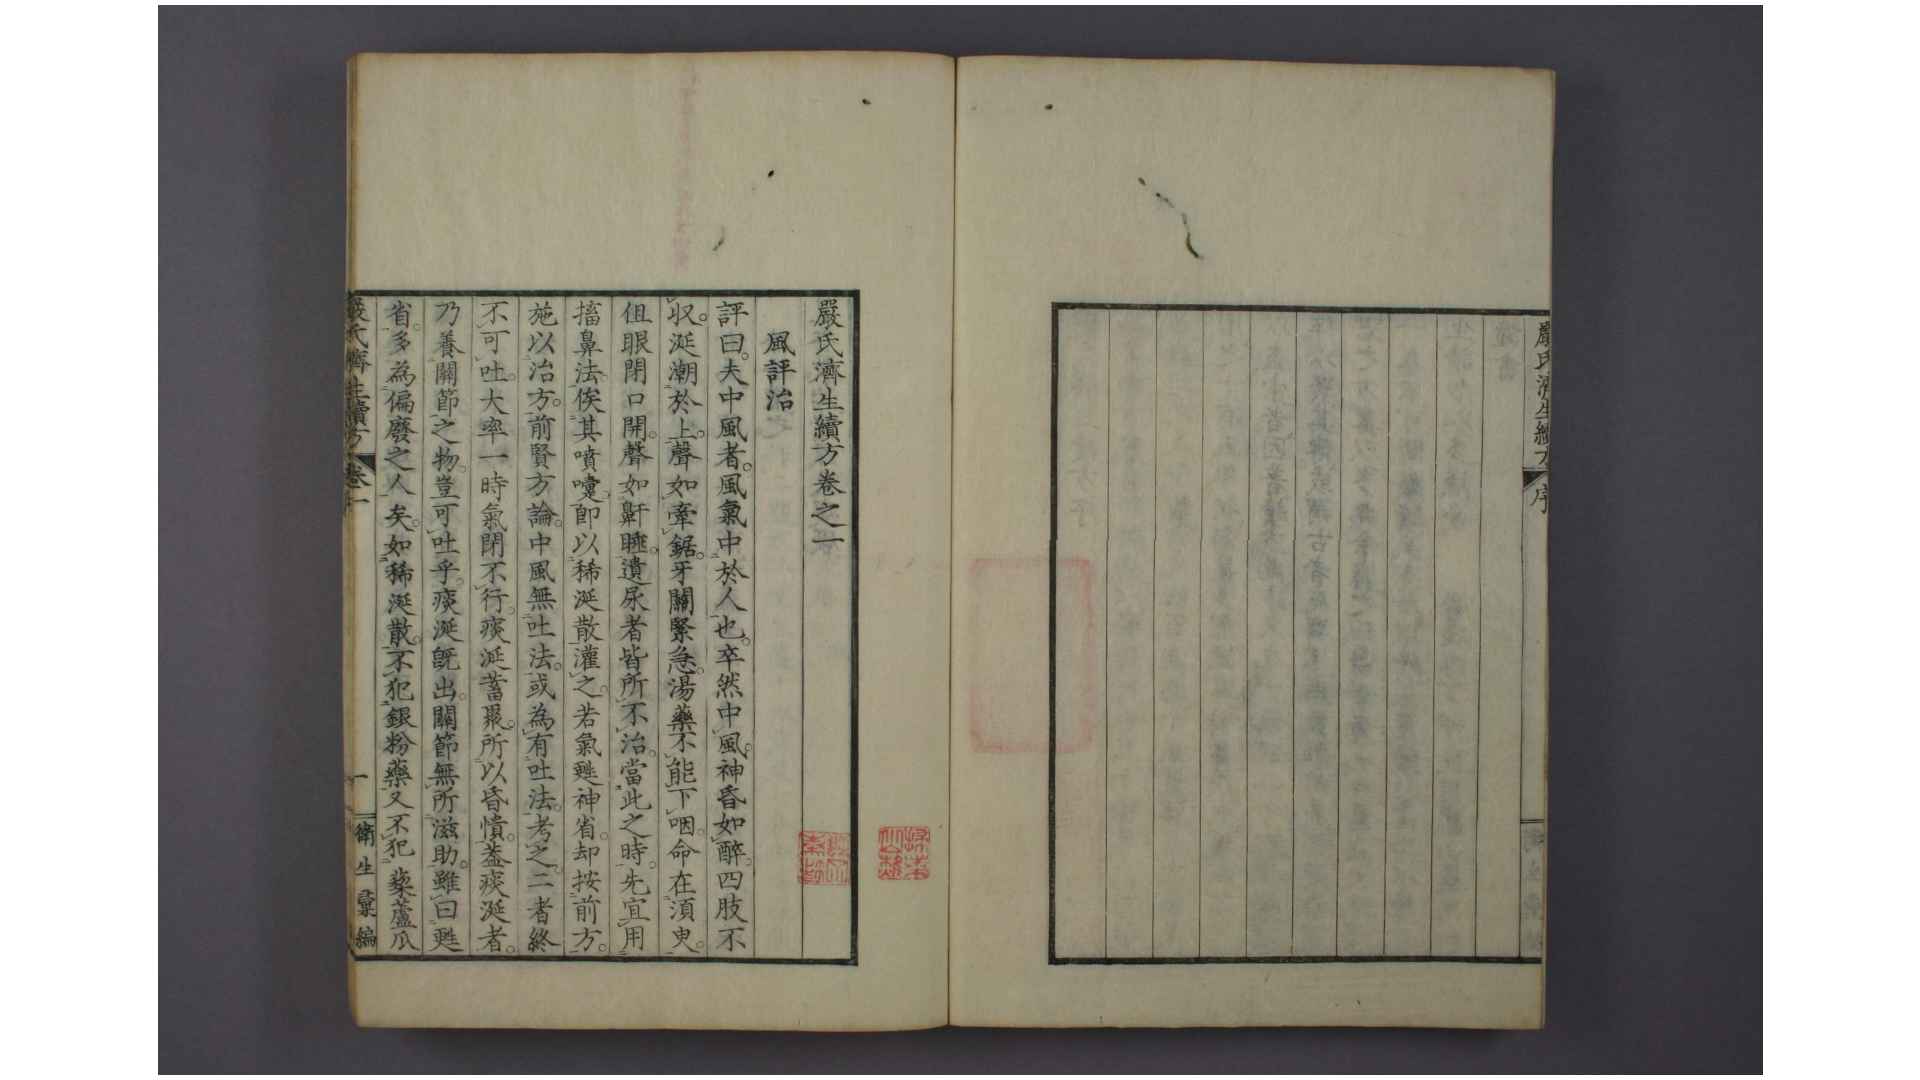 嚴氏濟生續方
序
嚴氏濟生續方卷之一
風評治
評曰。夫中風者。風氣中於人也。卒然中風。神昏如醉。四肢不
收。涎潮於上。聲如牽鋸。牙關緊急。湯藥不能下咽。命在須臾。
但眼閉口開。聲如鼾睡。遺尿者皆所不治。當此之時。先宜用
搐鼻法。俟其噴嚏。卽以稀涎散灌之。若氣甦神省。却按前方。
施以治方。前賢方論。中風無吐法。或為有吐法。考之。二者終
不可吐。大率一時氣閉不行。痰涎蓄聚。所以昏憒。葢痰涎者。
乃養關節之物。豈可吐乎。痰涎旣出。關節無所滋助。雖曰甦
省。多為偏廢之人矣。如稀涎散。不犯銀粉藥。又不犯藜蘆瓜
嚴氏濟生續方
卷一
一
衛生彙編